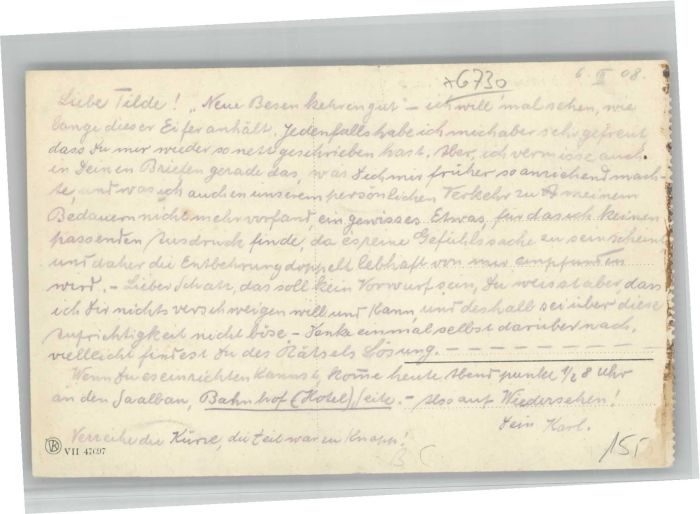 *6730
6. II 08.
Liebe Tilde! „Neue Besen kehren gut" – ich will mal sehen, wie
lange dieser Eifer anhält. Jedenfalls habe ich mich aber sehr gefreut
dass Du mir wieder so nett geschrieben hast. Aber, ich vermisse auch
in Deinen Briefen gerade das, was Dich mir früher so anziehend mach-
te, und was ich auch in unserem persönlichen Verkehr zu meinem
Bedauern nicht mehr vorfand, ein gewisses Etwas, für das ich keinen
passenden Ausdruck finde, da es reine Gefühlssache zu sein scheint
und daher die Entbehrung doppelt lebhaft von mir empfunden
wird. – Lieber Schatz, das soll kein Vorwurf sein, Du weisst aber dass
ich Dir nichts verschweigen will und kann, und deshalb sei über diese
Aufrichtigkeit nicht böse – Denke einmal selbst darüber nach,
vielleicht findest Du des Rätsels Lösung. – – – – – – – –
Wenn Du es einrichten kannst, komme heute Abend punkt 1/2 8 Uhr
an den Saalbau, Bahnhof (Hotel) Seite. – Also auf Wiedersehen!
Dein Karl.
Verzeihe die Kürze, die Zeit war zu knapp!
VII 47697
B C
15,-